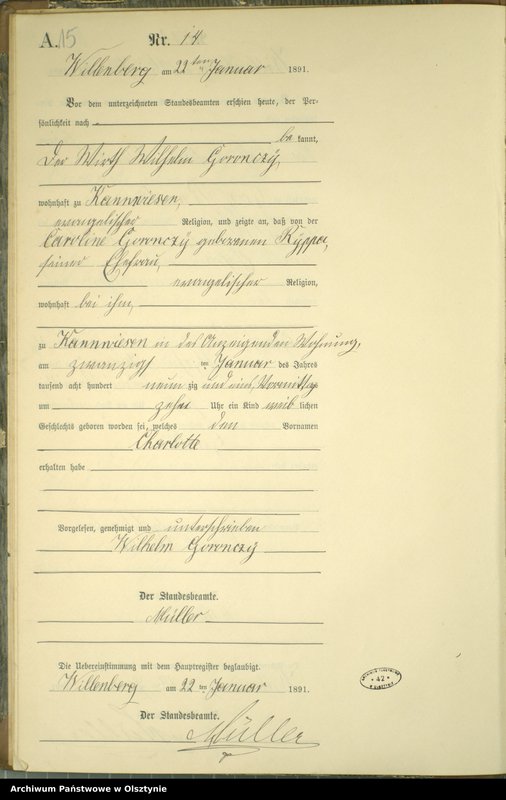 A. 15 Nr. 14
Willenberg am 22ten Januar 1891.
Vor dem unterzeichneten Standesbeamten erschien heute, der Per-
sönlichkeit nach
be kannt,
Der Wirth Wilhelm Goronczÿ,
wohnhaft zu Kannwiesen,
evangelischer Religion, und zeigte an, daß von der
Caroline Goronczÿ geborenen
seiner Ehefrau,
evangelischer Religion,
wohnhaft bei ihm,
zu Kannwiesen in des Anzeigenden Wohnung,
am zwanzigsten Januar des Jahres
tausend acht hundert neunzig und eins, Vormittags
um zehn Uhr ein Kind weiblichen
Geschlechts geboren worden sei, welches den Vornamen
Charlotte
erhalten habe
Vorgelesen, genehmigt und unterschrieben
Wilhelm Goronczÿ
Der Standesbeamte.
Müller
Die Uebereinstimmung mit dem Hauptregister beglaubigt.
Willenberg am 22 ten Januar 1891.
Der Standesbeamte.
Müller
42
Archiwum Państwowe w Olsztynie